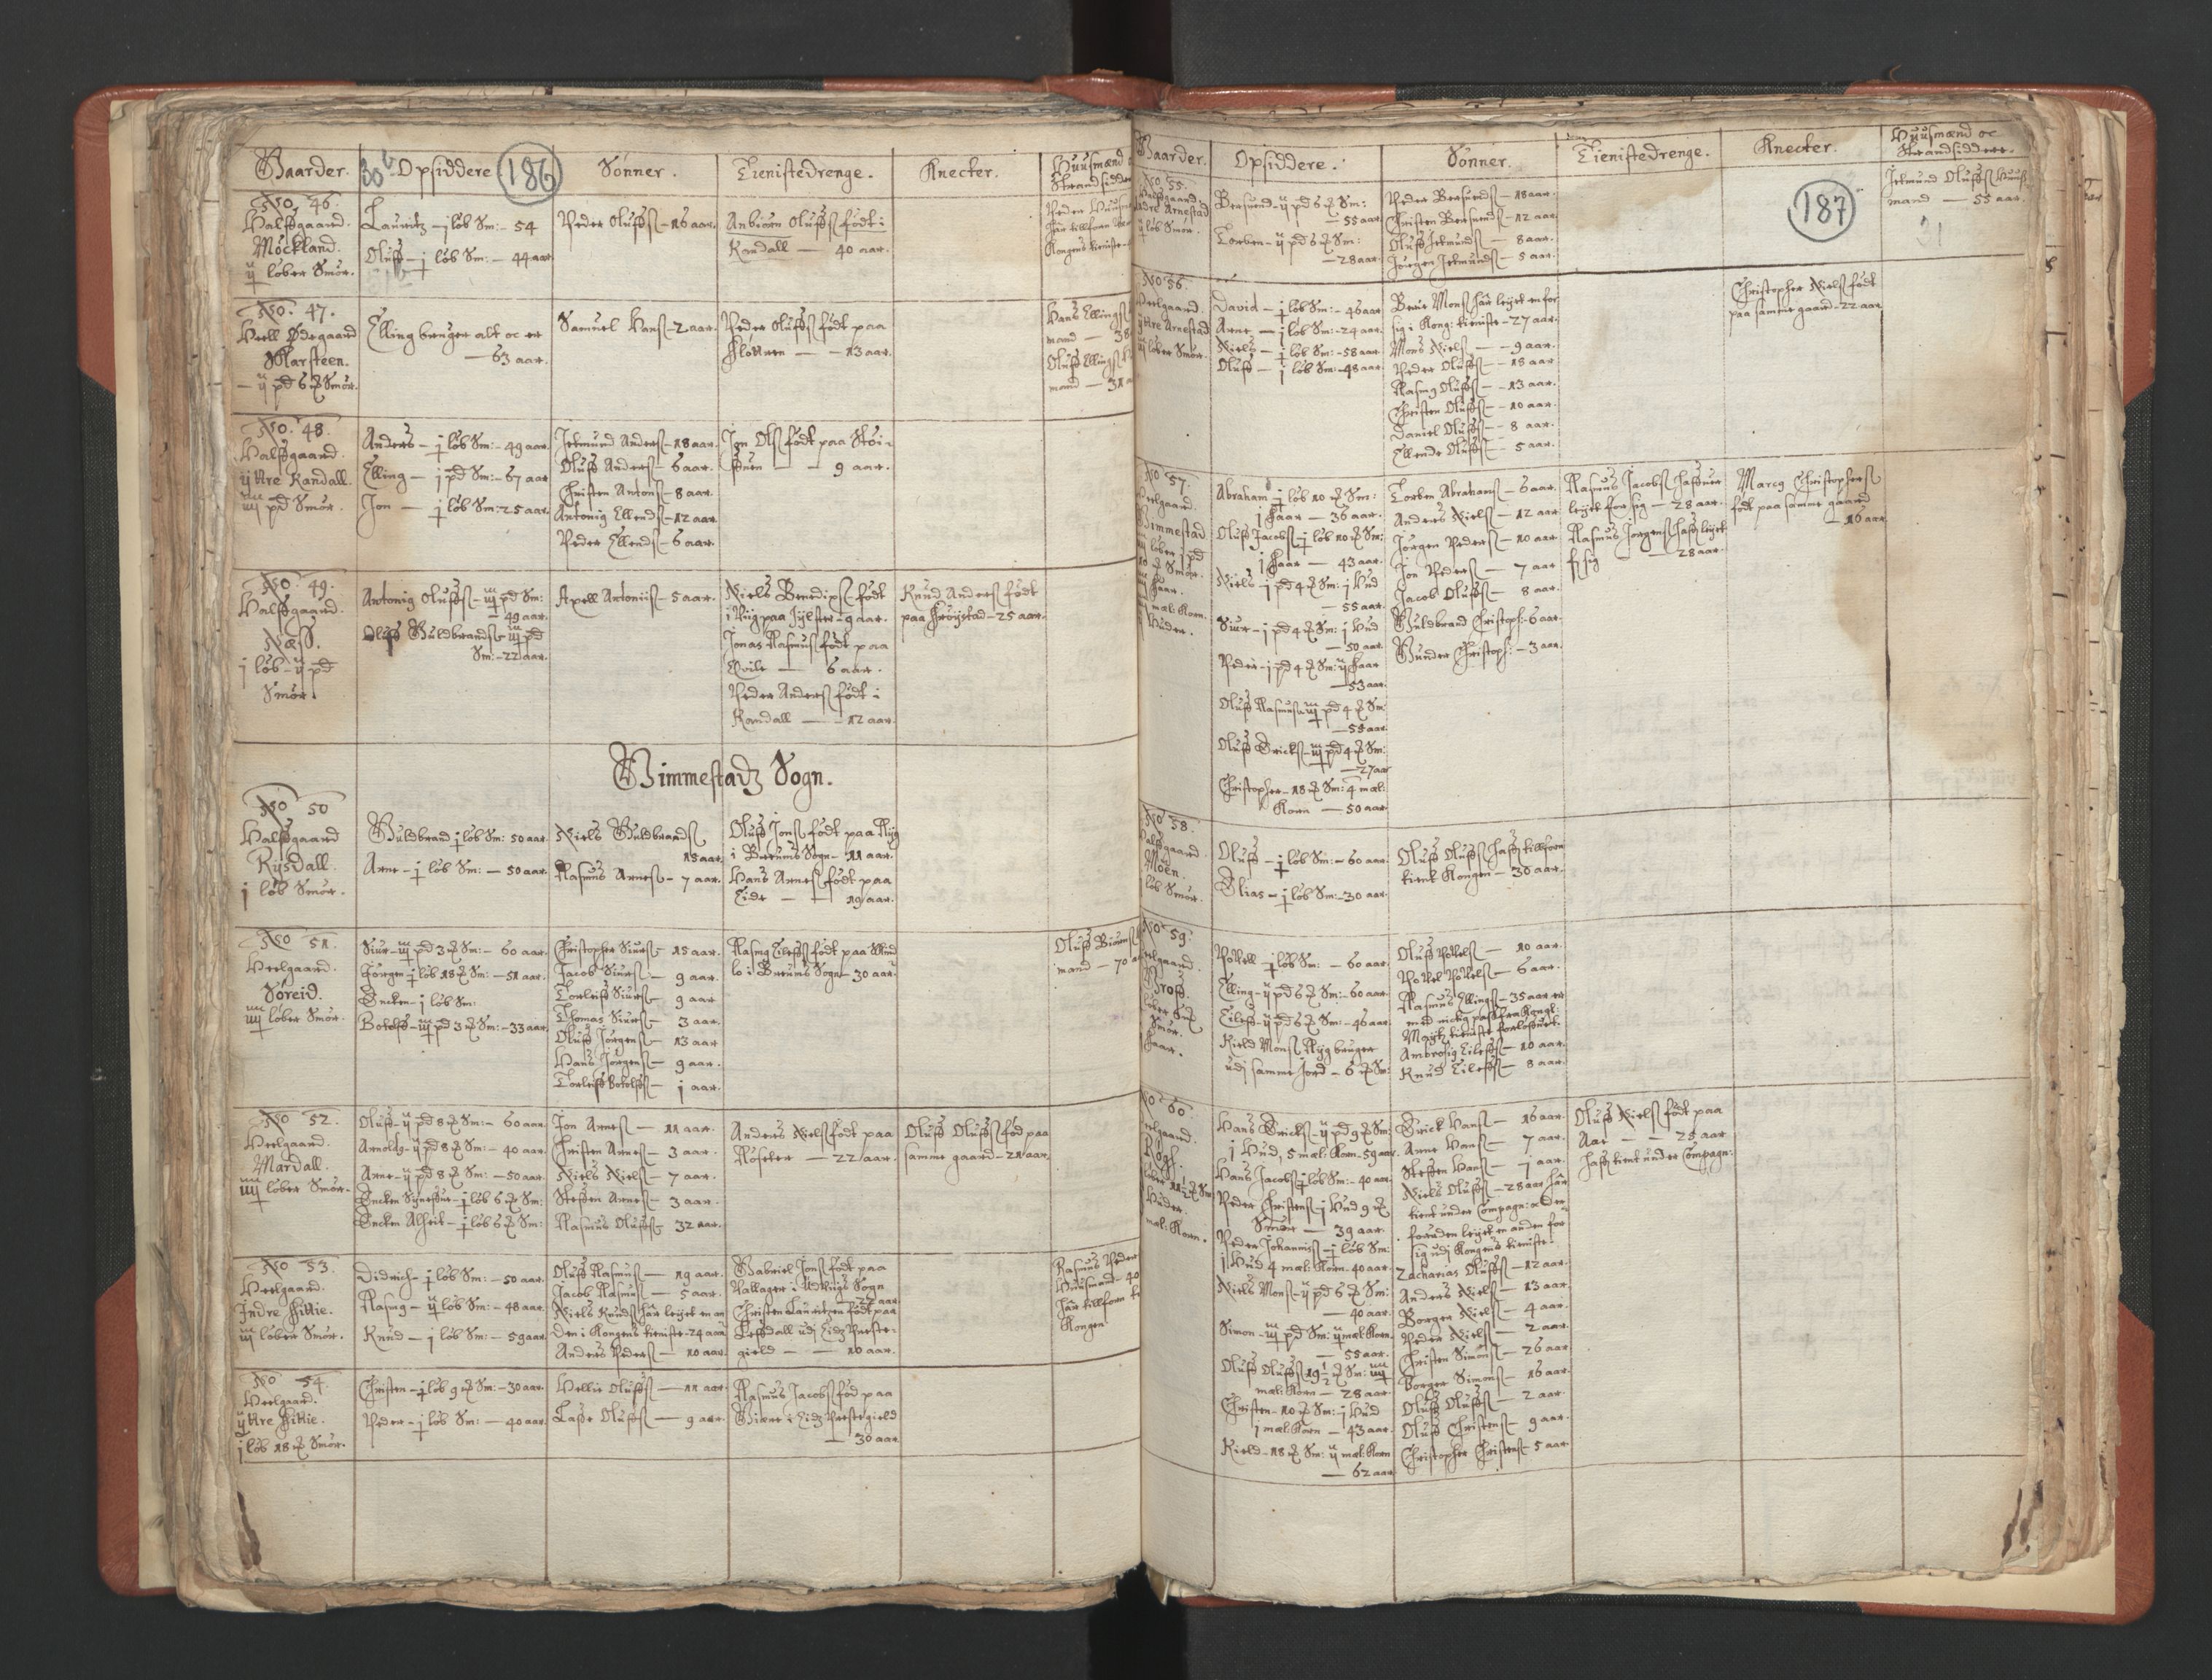 Gaarder.
30b Opsiddere
186
Sønner.
Tienistedrenge.
Knecter.
Huusmænd
Strandsidder
No. 46.
Halfgaard.
Möckland.
ij löber Smör.
Lauritz – j löb Sm: – 54
Oluff – j löb Sm: – 44 aar
Peder Oluffs – 16 aar.
Anbiörn Oluffs födt i
Randall — 40 aar.
Peder Huusm
Kongens tieniste
No. 47.
Heell Ødegaard
Skarsteen.
– ij pd 6 Smör.
Elling bruger alt oc er
— 63 aar.
Samuel Hans – 2 aar.
Peder Oluffs födt paa
Flöttren — 13 aar.
Hans Ellings
mand — 38
Oluff Ellings
mand — 31
No. 48.
Halfgaard.
ÿttre Randall.
iiij pd Smör.
Anders – j löb Sm: – 49 aar
Elling – j pd Sm: – 67 aar
Jon — j löb Sm: 25 aar
Jetmund Anders – 18 aar.
Oluff Anders – 6 aar.
Christen Antons – 8 aar.
Antonig Ellends – 12 aar
Peder Ellends – 6 aar.
Jon Ols födt paa Stöi-
— 9 aar.
No. 49.
Halfgaard.
Næss.
j löb – ij pd
Smör.
Antonig Oluffs – iij pd Sm:
— 49 aar.
Oluff Guldbrands – iij pd
Sm: – 22 aar.
Axell Antonis – 5 aar.
Niels Bendixs födt
i Viig paa Jylster – 9 aar.
Jonas Rasmus födt paa
Qvile — 6 aar.
Peder Anders födt i
Randall — 12 aar.
Knud Anders födt
paa Fröystad – 25 aar.
Gimmestadz Sogn.
No 50
Halfgaard
Rysdall.
j löb Smör.
Guldbrand j löb Sm: 50 aar.
Arne – j löb Sm: — 50 aar.
Niels Guldbrands
15 aar.
Rasmus Arnes – 7 aar.
Oluff Jons födt paa Ryg
i Breums Sogn – 11 aar.
Hans Arnes födt paa
Eide — 19 aar.
No 51.
Heelgaard.
Söreid.
iiij löber Smör.
Siur – iij pd 3 Sm: – 60 aar.
Jörgen – j löb 18 Sm: — 51 aar.
Encken – j löb Sm:
Botolff – iij pd 3 Sm: – 33 aar.
Christopher Siurs – 15 aar.
Jacob Siurs – 9 aar.
Torleiff Siurs – 9 aar
Thomas Siurs – 3 aar.
Oluff Jörgens – 13 aar
Hans Jörgens – 9 aar.
Torleiff Botolffs – j aar.
Rasmg Eileffs födt paa
lo i Breums Sogn – 30 aar.
Oluff Biörns
mand – 70
No 52.
Heelgaard.
Mardall.
iiij löber Smör.
Oluff – ij pd 8 Sm: – 60 aar.
Arnoldg – ij pd 8 Sm: – 40 aar.
Arne – ij pd 8 Sm: – 50 aar.
Encken Sygneffue – j löb 6 Sm:
Encken Alheit – j löb 6 Sm:
Jon Arnes — 11 aar.
Christen Arnes – 3 aar.
Niels Niels – 7 aar.
Steffen Arnes – 3 aar.
Rasmus Oluffs – 32 aar.
Anders Niels födt paa
— 22 aar.
Oluff Oluffs föd paa
samme gaard – 21 aar.
No 53.
Heelgaard.
Jndre Hittie.
iij löber Smör.
Didrich – j löb Sm: – 50 aar.
Rasmg – ij löb Sm: – 48 aar.
Knud – j löb Sm: – 59 aar.
Oluff Rasmus — 19 aar.
Jacob Rasmus – 5 aar.
Niels Knuds har leyet en an
den i Kongens tieniste – 24 aar
Anders Peders – 10 aar.
Gabriel Jons födt paa
Sogn
22 aar.
Christen Lauritzen födt paa
Leffdall udj Eidz Preste-
gield — 10 aar.
Rasmus Peder
Huusmand – 40
har tillforn
Kongen
No 54.
Heelgaard.
ÿttre Hittie.
j löb 18 Smör.
Christen – j löb 9 Sm: – 30 aar.
Peder – j löb Sm: — 40 aar.
Hellie Oluffs — 11 aar.
Lasse Oluffs — 9 aar.
Rasmus Jacobs föd paa
i Eidz Prestegield
— 30 aar.
Gaarder.
Opsiddere.
Sönner.
Tienistedrenge.
Knecter.
187
Huusmænd oc
Strandsiddere.
No 55.
Halfgaard.
Jndre Arnestad
ij löb Smör.
Bersuend – ij pd 6 Sm:
— 55 aar.
Torben – ij pd 6 Sm:
— 28 aar.
Peder Bersuends – 18 aar.
Christen Bersuends – 12 aar.
Oluff Jetmunds – 8 aar.
Jörgen Jetmunds – 5 aar.
Jetmund Oluffs Huus
mand — 55 aar.
31
No 56.
Heelgaard.
ÿttre Arnestad
löber Smör.
David – j löb Sm: – 46 aar
Arne — j löb Sm: – 24 aar.
Niels — j löb Sm: – 58 aar.
Oluff — j löb Sm: 48 aar.
Bent Mons har leyet en for
sig i Kong: tieniste – 27 aar.
Mons Niels — 9 aar.
Peder Oluffs — 18 aar
Rasmg Oluffs — 13 aar.
Christen Oluffs — 10 aar.
Daniel Oluffs — 8 aar.
Ellende Oluffs — 5 aar.
Christopher Niels födt
paa samme gaard – 22 aar
No 57.
Heelgaard.
Gimmestad
löber j pd
10 Smör.
faar.
mæl: Korn.
Huder.
Abraham j löb 10 Sm:
j faar — 36 aar.
Oluff Jacobs – j löb 10 Sm:
j faar — 43 aar.
Niels – j pd 4 Sm: j Hud
— 55 aar.
Siur – j pd 4 Sm: j Hud
— 50 aar.
Peder – j pd 4 Sm: ij faar
— 53 aar.
Oluff Rasmus iij pd 4 Sm:
— 55 aar.
Oluff Ericks – iij pd 4 Sm:
— 27 aar
Christopher – 18 Sm: 4 mæl:
Korn — 50 aar.
Torben Abrahams – 6 aar.
Anders Niels – 12 aar.
Jörgen Peders – 10 aar
Jon Peders – 7 aar
Jacob Oluffs – 8 aar.
Guldbrand Christoph: – 6 aar.
Gunder Christoph: – 3 aar.
Rasmus Jacobs haffuer
leyet for sig – 28 aar.
Rasmus Jörgens haffr leyet
f sig — 28 aar.
Marcg Christophers
födt paa samme gaard
– 16 aar
No 58.
Halfgaard.
Moen.
löb Smör.
Oluff – j löb Sm: – 60 aar.
Elias – j löb Sm: – 30 aar.
Oluff Oluffs haffr tillforn
tient Kongen – 30 aar.
No 59.
Heelgaard.
Smör.
faar.
Pottell – j löb Sm: – 60 aar.
Elling – ij pd 6 Sm: – 60 aar.
Eileff – ij pd 6 Sm: – 46 aar.
Kield Mons Ryg bruger
udj samme Jord – 6 Sm:
Oluff Pottels — 10 aar.
Pottel Pottels – 6 aar.
Rasmus Ellings – 35 aar er
med rictig pass fra Kongl:
Maytz tieniste forlöffuet.
Ambrosig Eileffs – 10 aar.
Knud Eileffs – 8 aar.
No 60.
Heelgaard.
Huder.
mæl: Korn.
Hans Ericks – ij pd 9 Sm:
j Hud, 5 mæl: Korn – 59 aar.
Hans Jacobs j löb Sm: – 40 aar.
Peder Christens – j Hud 9
Smör — 39 aar.
Peder Johannis – j löb Sm:
j Hud 4 mæl: Korn – 40 aar.
Niels Mons – ij pd 6 Sm:
— 40 aar.
Simon – iij pd Sm: ij mæl: Korn
— 55 aar.
Oluff Oluffs 19½ Sm: iiij
mæl: Korn — 28 aar.
Christen – 10 Sm: j Hud
j mæl: Korn — 43 aar.
Kield – 18 Sm: ij mæl: Korn
— 62 aar.
Erick Hans — 16 aar.
Arne Hans — 7 aar.
Steffen Hans – j aar.
Niels Oluffs – 28 aar har
tient under Compagn: oc der
foruden leyet en anden for
sig udj Kongens tieniste.
Zacharias Oluffs – 12 aar.
Anders Niels – 13 aar.
Borger Niels – 4 aar.
Peder Niels – 2 aar.
Christen Simons – 26 aar
Borger Simons – 16 aar.
Oluff Oluffs – 2 aar.
Oluff Christens – 9 aar.
Christopher Christens – 5 aar.
Oluff Niels födt paa
Aar — 25 aar
haffr tient under Compagn: